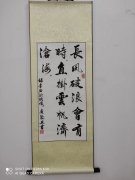 長風破浪會有
時直掛雲帆濟
滄海